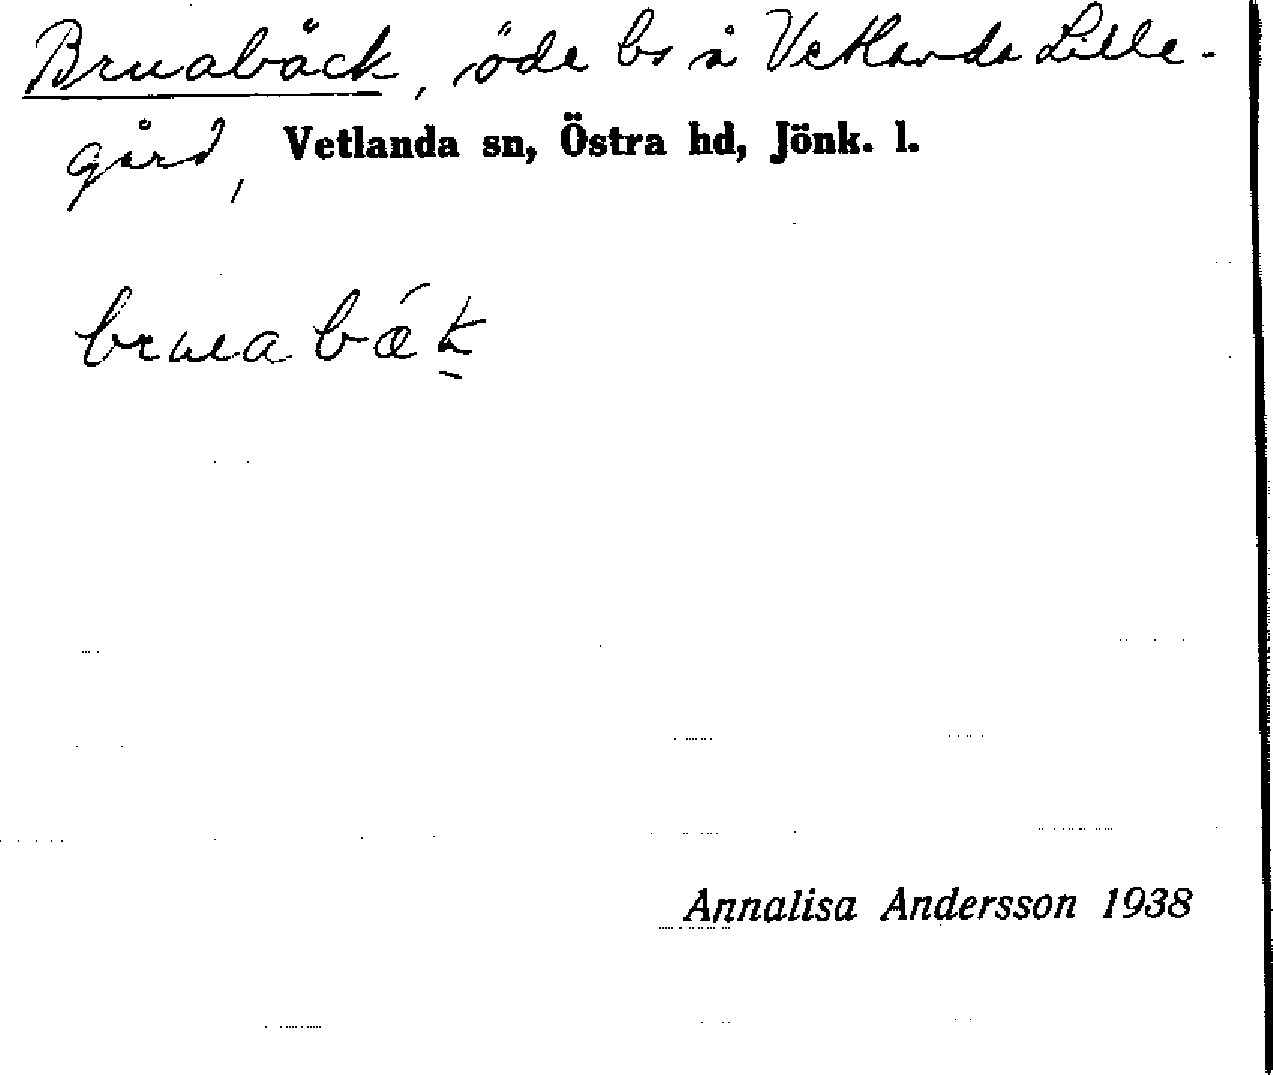 Bruabäck, öde bs å Vetlanda Lille-
gård, Vetlanda sn, Östra hd, Jönk. l.
bruabǽk̠
Annalisa Andersson 1938